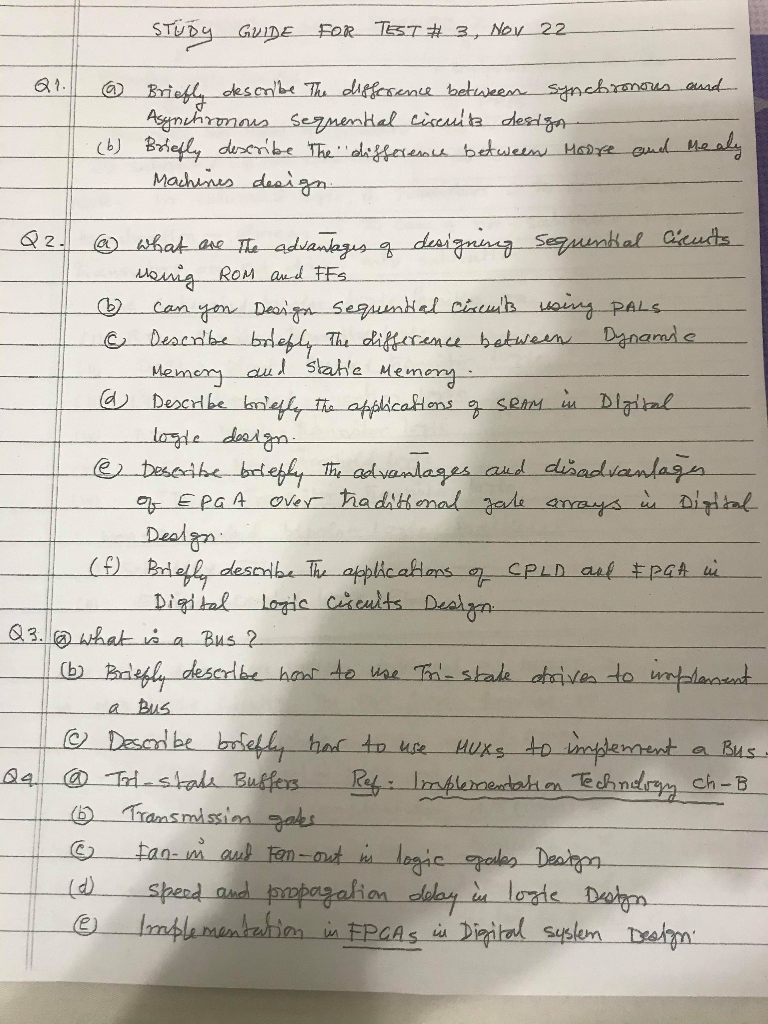 STUDY GUIDE FOR TEST # 3, NOV 22
Q1. (a) Briefly describe The difference between synchronous and
Asynchronous Sequential Circuits design.
(b) Briefly describe The difference between Moore and Mealy
Machines design.
Q2. (a) What are The advantages of designing Sequential Circuits
using ROM and FFs
(b) Can you Design Sequential Circuits using PALs
(c) Describe briefly The difference between Dynamic
Memory and Static Memory.
(d) Describe briefly The applications of SRAM in Digital
logic design.
(e) Describe briefly The advantages and disadvantages
of FPGA over traditional gate arrays in Digital
Design.
(f) Briefly describe The applications of CPLD and FPGA in
Digital Logic Circuits Design.
Q3. (a) What is a Bus ?
(b) Briefly describe how to use Tri-state drives to implement
a Bus
(c) Describe briefly how to use MUXs to implement a Bus.
Q4. (a) Tri-state Buffers Ref: Implementation Technology Ch-B
(b) Transmission gates
(c) Fan-in and Fan-out in logic gates Design
(d) Speed and propagation delay in logic Design
(e) Implementation in FPGAs in Digital system Design.